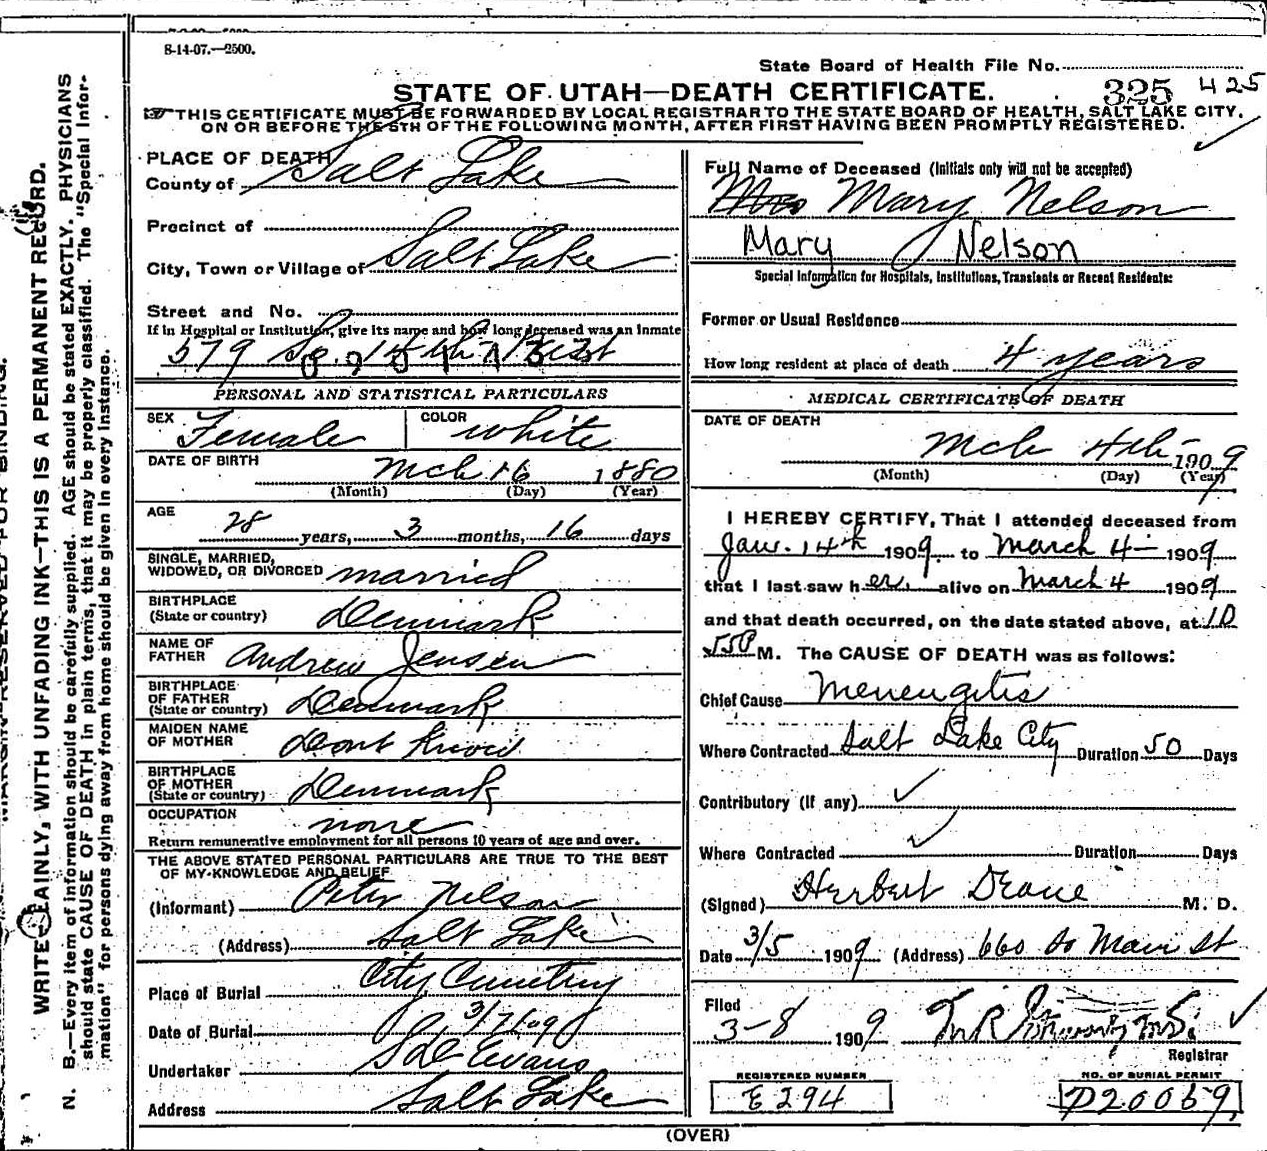 8-14-07.—2500.
State Board of Health File No.
STATE OF UTAH—DEATH CERTIFICATE.
325 425
THIS CERTIFICATE MUST BE FORWARDED BY LOCAL REGISTRAR TO THE STATE BOARD OF HEALTH, SALT LAKE CITY,
ON OR BEFORE THE 5TH OF THE FOLLOWING MONTH, AFTER FIRST HAVING BEEN PROMPTLY REGISTERED.
PLACE OF DEATH
County of Salt Lake
Precinct of
City, Town or Village of Salt Lake
Street and No.
If in Hospital or Institution, give its name and how long deceased was an inmate
579 So 14th West
PERSONAL AND STATISTICAL PARTICULARS
SEX Female COLOR white
DATE OF BIRTH Mch 16 1880
(Month) (Day) (Year)
AGE
28 years, 3 months, 16 days
SINGLE, MARRIED,
WIDOWED, OR DIVORCED married
BIRTHPLACE
(State or country) Denmark
NAME OF
FATHER Andrew Jensen
BIRTHPLACE
OF FATHER
(State or country) Denmark
MAIDEN NAME
OF MOTHER Dont Know
BIRTHPLACE
OF MOTHER
(State or country) Denmark
OCCUPATION none
Return remunerative employment for all persons 10 years of age and over.
THE ABOVE STATED PERSONAL PARTICULARS ARE TRUE TO THE BEST
OF MY KNOWLEDGE AND BELIEF
(Informant) Peter Nelson
(Address) Salt Lake
Place of Burial City Cemetery
Date of Burial 3/7/09
Undertaker Evans
Address Salt Lake
Full Name of Deceased (Initials only will not be accepted)
Mrs Mary Nelson
Mary Nelson
Special Information for Hospitals, Institutions, Transients or Recent Residents:
Former or Usual Residence
How long resident at place of death 4 years
MEDICAL CERTIFICATE OF DEATH
DATE OF DEATH
Mch 4th 1909
(Month) (Day) (Year)
I HEREBY CERTIFY, That I attended deceased from
Jan. 14th 1909 to March 4 1909
that I last saw her alive on March 4 1909
and that death occurred, on the date stated above, at 10
55 P M. The CAUSE OF DEATH was as follows:
Chief Cause Menengitis
Where Contracted Salt Lake City Duration 50 Days
Contributory (if any)
Where Contracted Duration Days
(Signed) Herbert Deane M. D.
Date 3/5 1909 (Address) 660 So Main St
Filed
3-8 1909
Registrar
REGISTERED NUMBER
E294
NO. OF BURIAL PERMIT
P20069
(OVER)
MARGIN RESERVED FOR BINDING.
WRITE PLAINLY, WITH UNFADING INK—THIS IS A PERMANENT RECORD.
N. B.—Every item of information should be carefully supplied. AGE should be stated EXACTLY. PHYSICIANS
should state CAUSE OF DEATH in plain terms, that it may be properly classified. The "Special Infor-
mation" for persons dying away from home should be given in every instance.